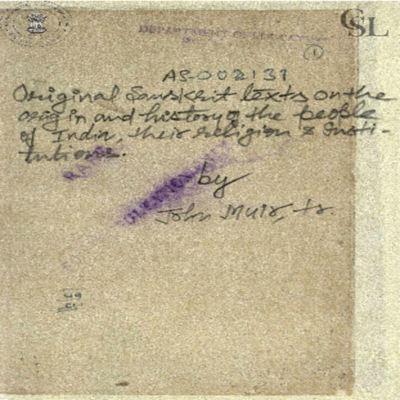 CSL
DEPARTMENT OF EDUCATION
1
AS-002131
Original Sanskrit texts on the
origin and history of the people
of India, their religion & Insti-
tutions.
by
John Muir, tr.